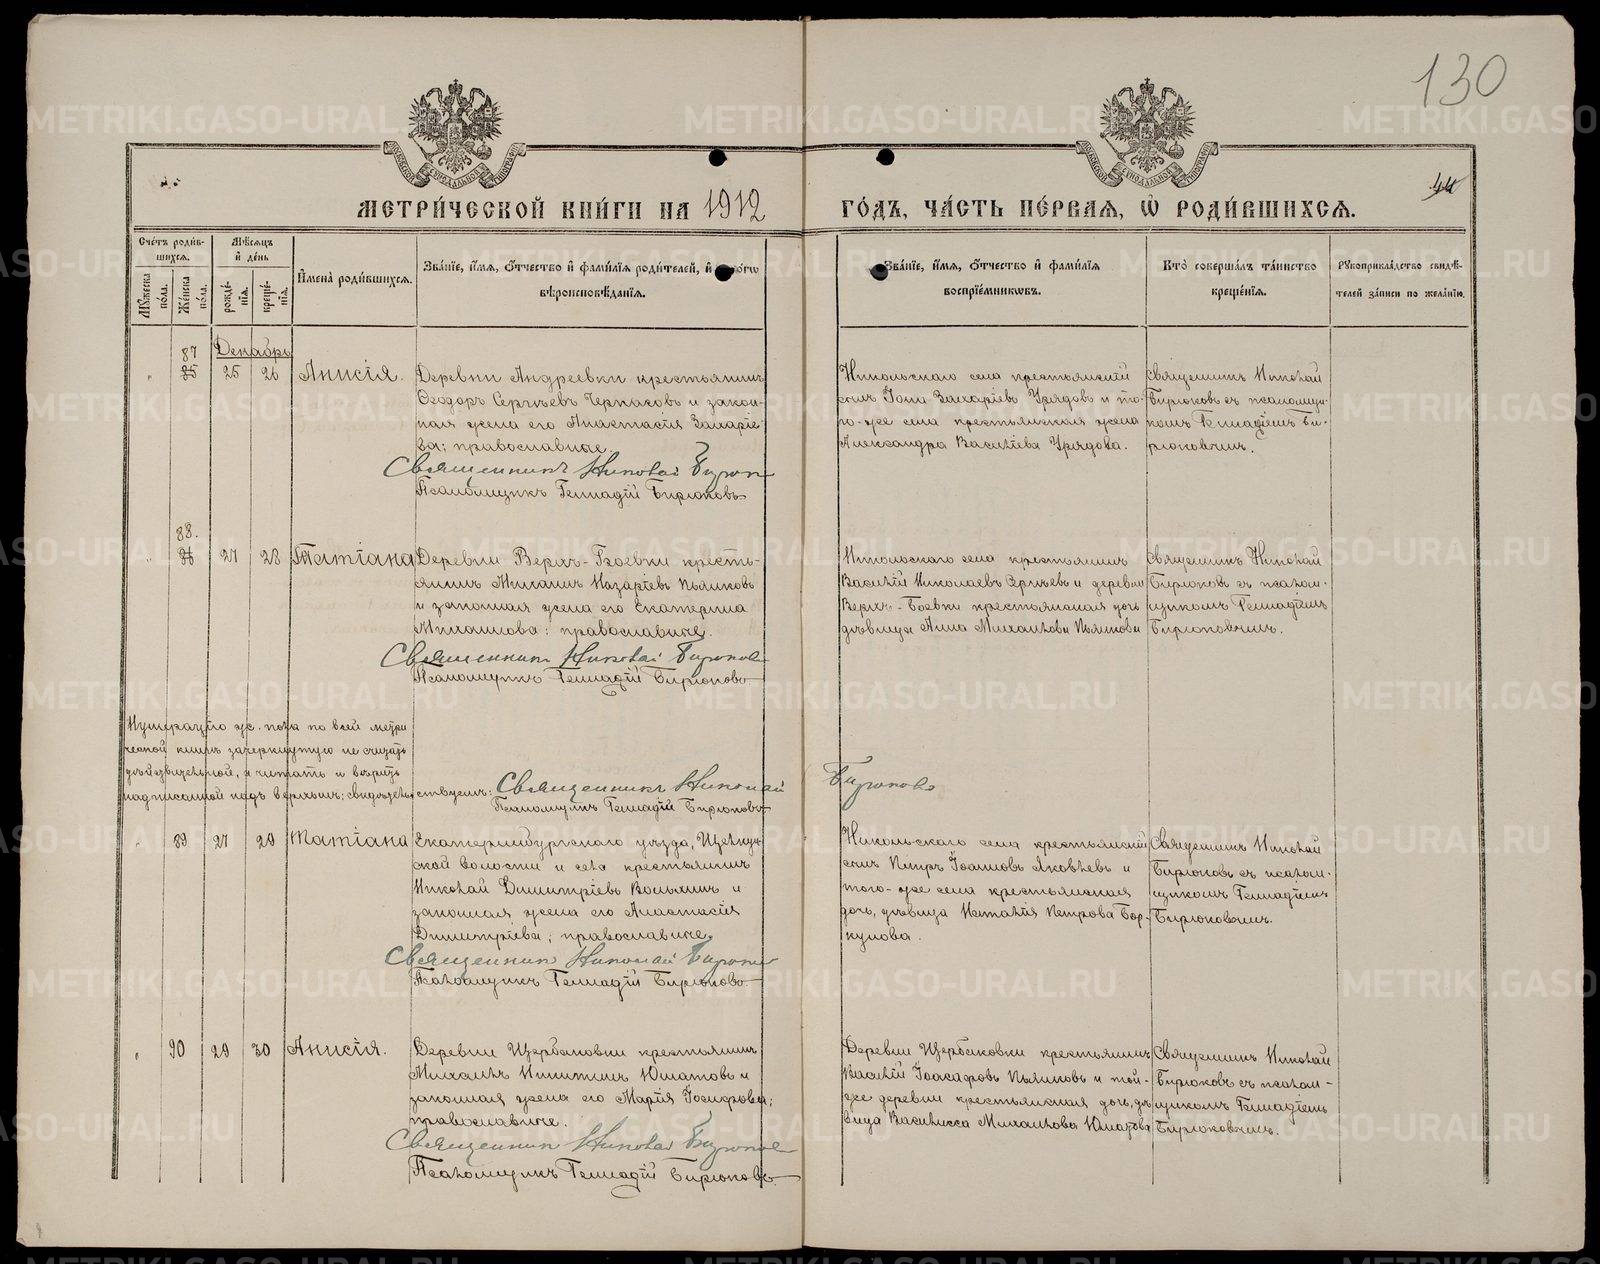 130
44
МЕТРИ́ЧЕСКОЙ КНИ́ГИ НА 1912 ГО́ДЪ, ЧА́СТЬ ПЕ́РВАЯ, Ѡ҆ РОДИ́ВШИХСЯ.
Сче́тъ роди́вшихся.
Мꙋ́жеска по́ла.
Же́нска по́ла.
Мѣ́сяцъ и҆ де́нь
рожде́нїя.
креще́нїя.
И҆мена̀ роди́вшихся.
Зва́нїе, и҆́мя, ѻ҆́тчество и҆ фамѝлїя роди́телей, и҆ како́гѡ
вѣроисповѣ́данїя.
Зва́нїе, и҆́мя, ѻ҆́тчество и҆ фамѝлїя
воспрїе́мникѡвъ.
Кто̀ соверша́лъ та́инство
креще́нїя.
Рꙋкоприкла́дство свидѣ́-
телей за́писи по жела́нїю.
Декабрь
87
85 25 26 Анисія.
Деревни Андреевки крестьянинъ
Ѳеодоръ Сергѣевъ Черпаковъ и закон-
ная жена его Анастасія Захаріе
ва; православные.
Священникъ Николай Бирюк
Псаломщикъ Геннадій Бирюковъ
Никольскаго села крестьянскій
сынъ Іона Захаріевъ Урядовъ и то-
го-же села крестьянская жена
Александра Василіева Урядова.
Священникъ Николай
Бирюковъ съ псаломщи-
комъ Геннадіемъ Би-
рюковымъ.
88.
86 27 28 Татіана
Деревни Верхъ-Боевки кресть-
янинъ Михаилъ Назаріевъ Пьянковъ
и законная жена его Екатерина
Михаилова; православные.
Священникъ Николай Бирюков
Псаломщикъ Геннадій Бирюковъ
Никольскаго села крестьянинъ
Василій Николаевъ и деревни
Верхъ-Боевки крестьянская дочь
дѣвица Анна Михаилова Пьянкова
Священникъ Николай
Бирюковъ съ псалом-
щикомъ Геннадіемъ
Бирюковымъ.
Нумерацію ж. пола по всей метри
ческой книгѣ зачеркнутую не считать
дѣйствительной, а читать и вѣрить
надписанной надъ верхомъ; свидѣтельствуемъ: Священникъ Николай Бирюковъ
Псаломщикъ Геннадій Бирюковъ
89 27 29 Татіана
Екатеринбургскаго уѣзда, Щелкун-
ской волости и села крестьянинъ
Николай Димитріевъ и
законная жена его Анастасія
Димитріева; православные.
Священникъ Николай Бирюков
Псаломщикъ Геннадій Бирюковъ
Никольскаго села крестьянскій
сынъ Петръ Іоанновъ Яковлевъ и
того-же села крестьянская
дочь, дѣвица Наталія Петрова Бор-
кунова.
Священникъ Николай
Бирюковъ съ псалом-
щикомъ Геннадіемъ
Бирюковымъ.
90 29 30 Анисія.
Деревни Щербаковки крестьянинъ
Михаилъ Никитинъ Юшатовъ и
законная жена его Марія Іосифова;
православные.
Священникъ Николай Бирюков
Псаломщикъ Геннадій Бирюковъ
Деревни Щербаковки крестьянинъ
Василій Іоасафовъ Пьянковъ и той-
же деревни крестьянская дочь, дѣ
вица Василисса Михаилова Юшатова
Священникъ Николай
Бирюковъ съ псалом-
щикомъ Геннадіемъ
Бирюковымъ.
METRIKI.GASO-URAL.RU